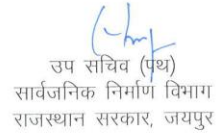 उप सचिव (पथ)
सार्वजनिक निर्माण विभाग
राजस्थान सरकार, जयपुर